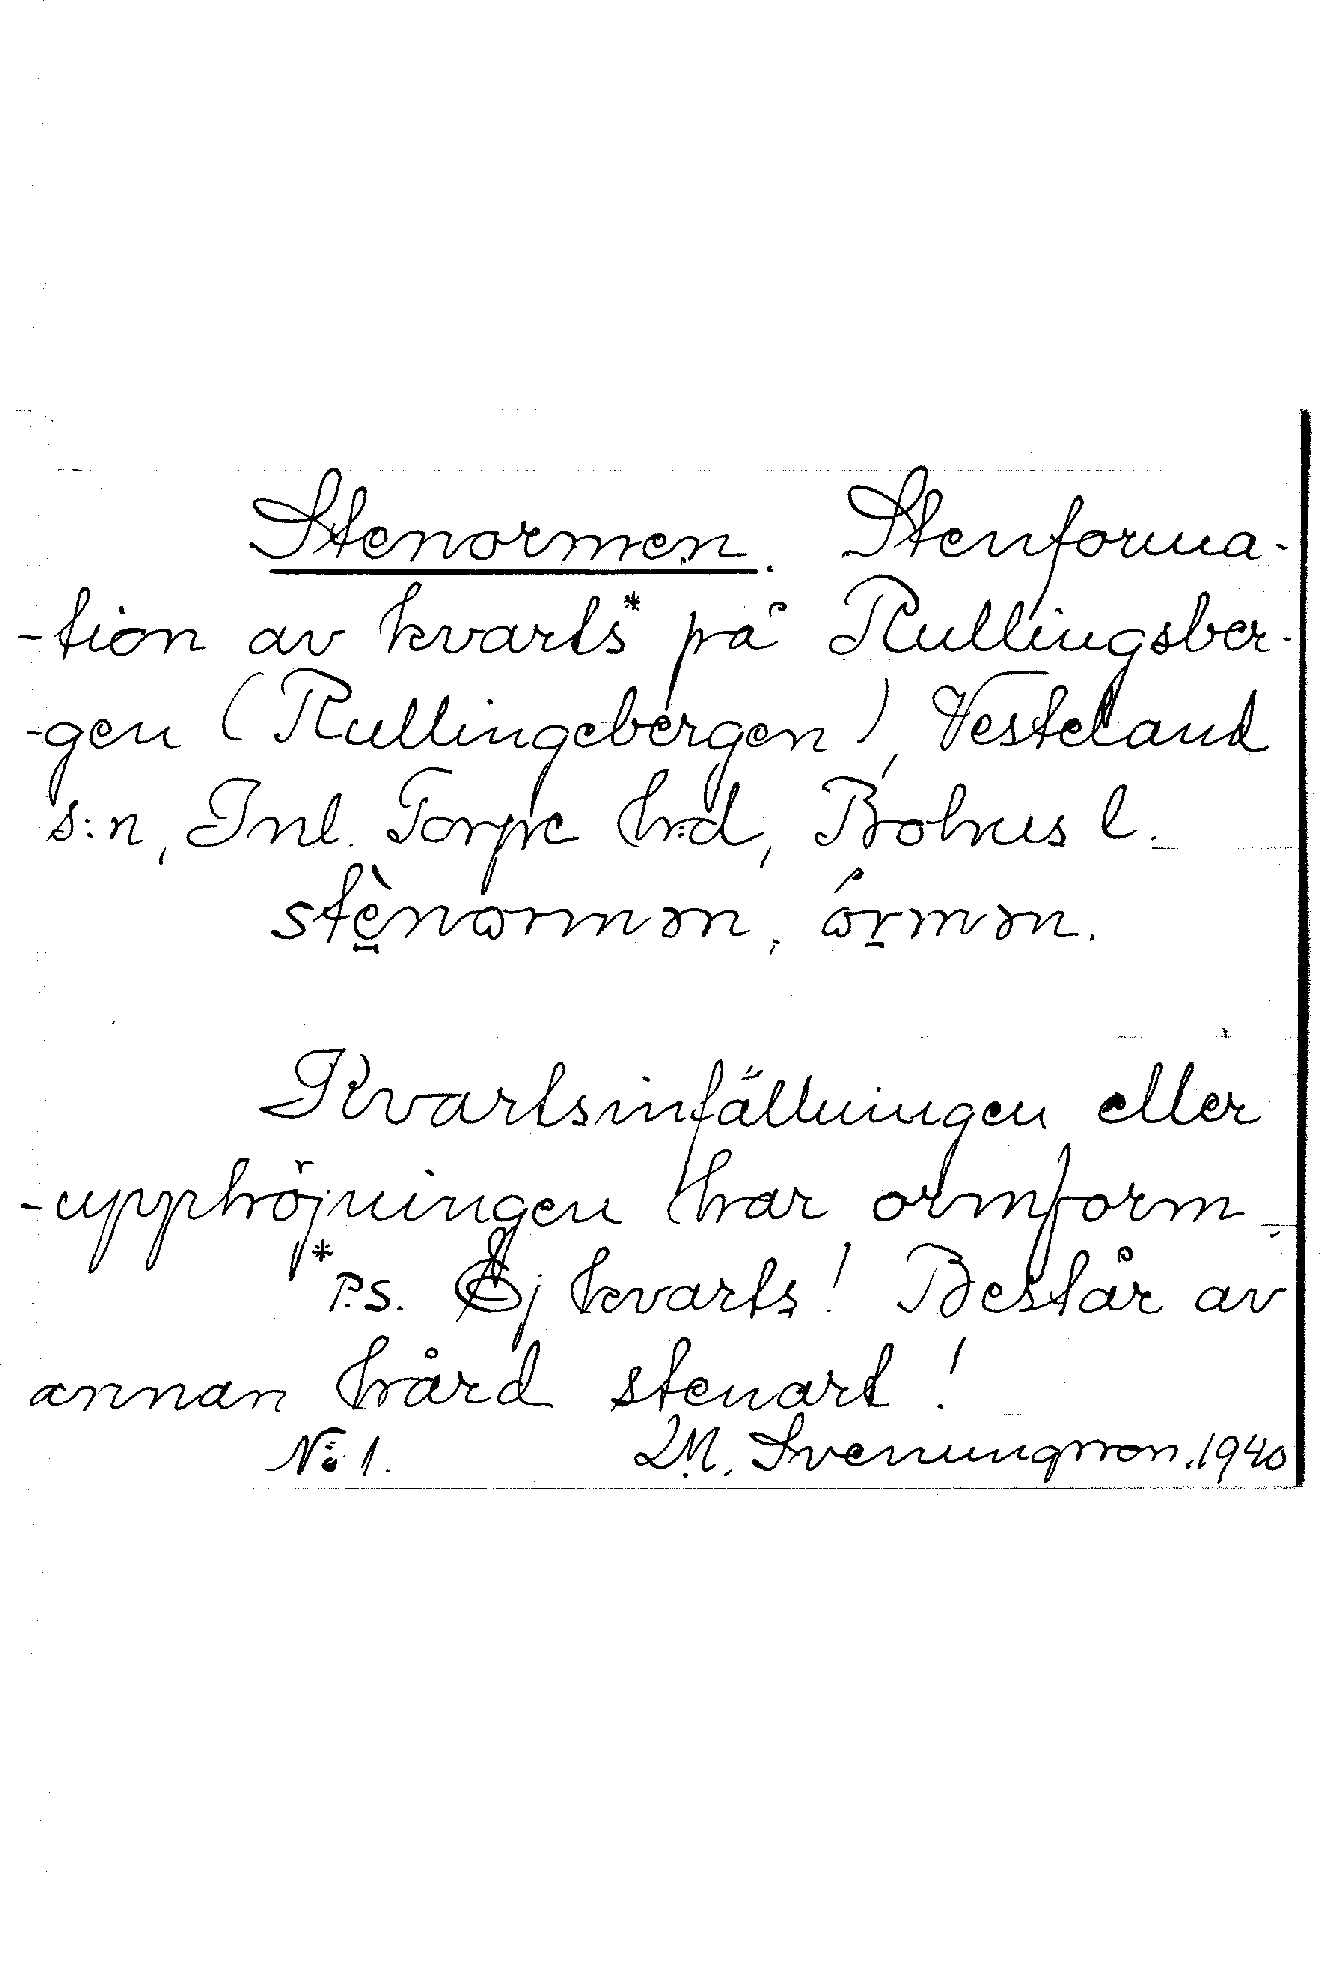 Stenormen. Stenforma-
-tion av kvarts* på Rullingsber-
-gen (Rullingebergen), Vesteland
s:n, Inl. Torpe hrd, Bohus l.
stènormən, órmən.
Kvartsinfällningen eller
-upphöjningen har ormform.
*P.S. Ej kvarts! Består av
annan hård stenart!
No 1. D.M. Svenungsson. 1940